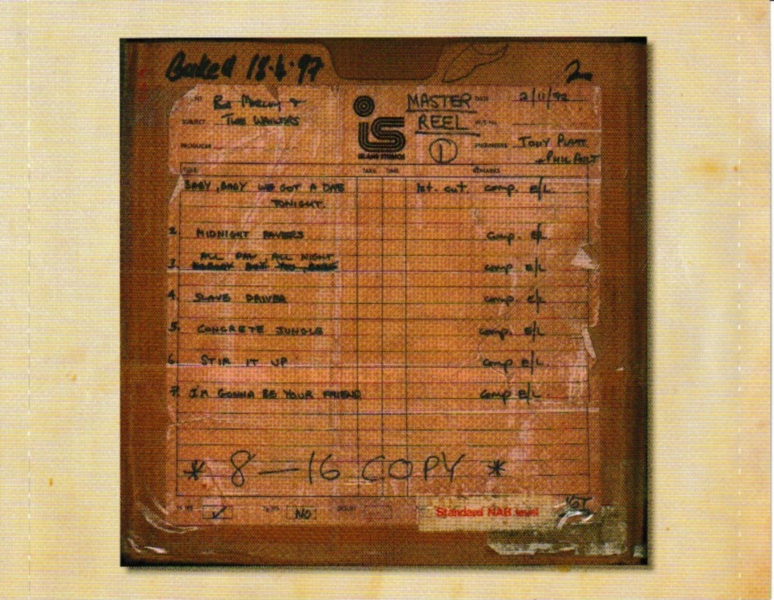 Baked 18·4·97
2"
Bob Marley +
The Wailers
SUBJECT
PRODUCER
is
ISLAND STUDIOS
MASTER
REEL
1
DATE 2/11/72
ENGINEERS Tony Platt
+ Phil Ault
TITLE TAKE TIME REMARKS
BABY, BABY WE GOT A DATE 1st. cut. comp. E/L.
TONIGHT.
2. MIDNIGHT RAVERS comp. E/L
ALL DAY, ALL NIGHT
3. comp E/L
4. SLAVE DRIVER comp E/L
5. CONCRETE JUNGLE comp. E/L
6. STIR IT UP comp E/L.
7. I'M GONNA BE YOUR FRIEND comp E/L
* 8 — 16 COPY *
NO
Standard NAB level